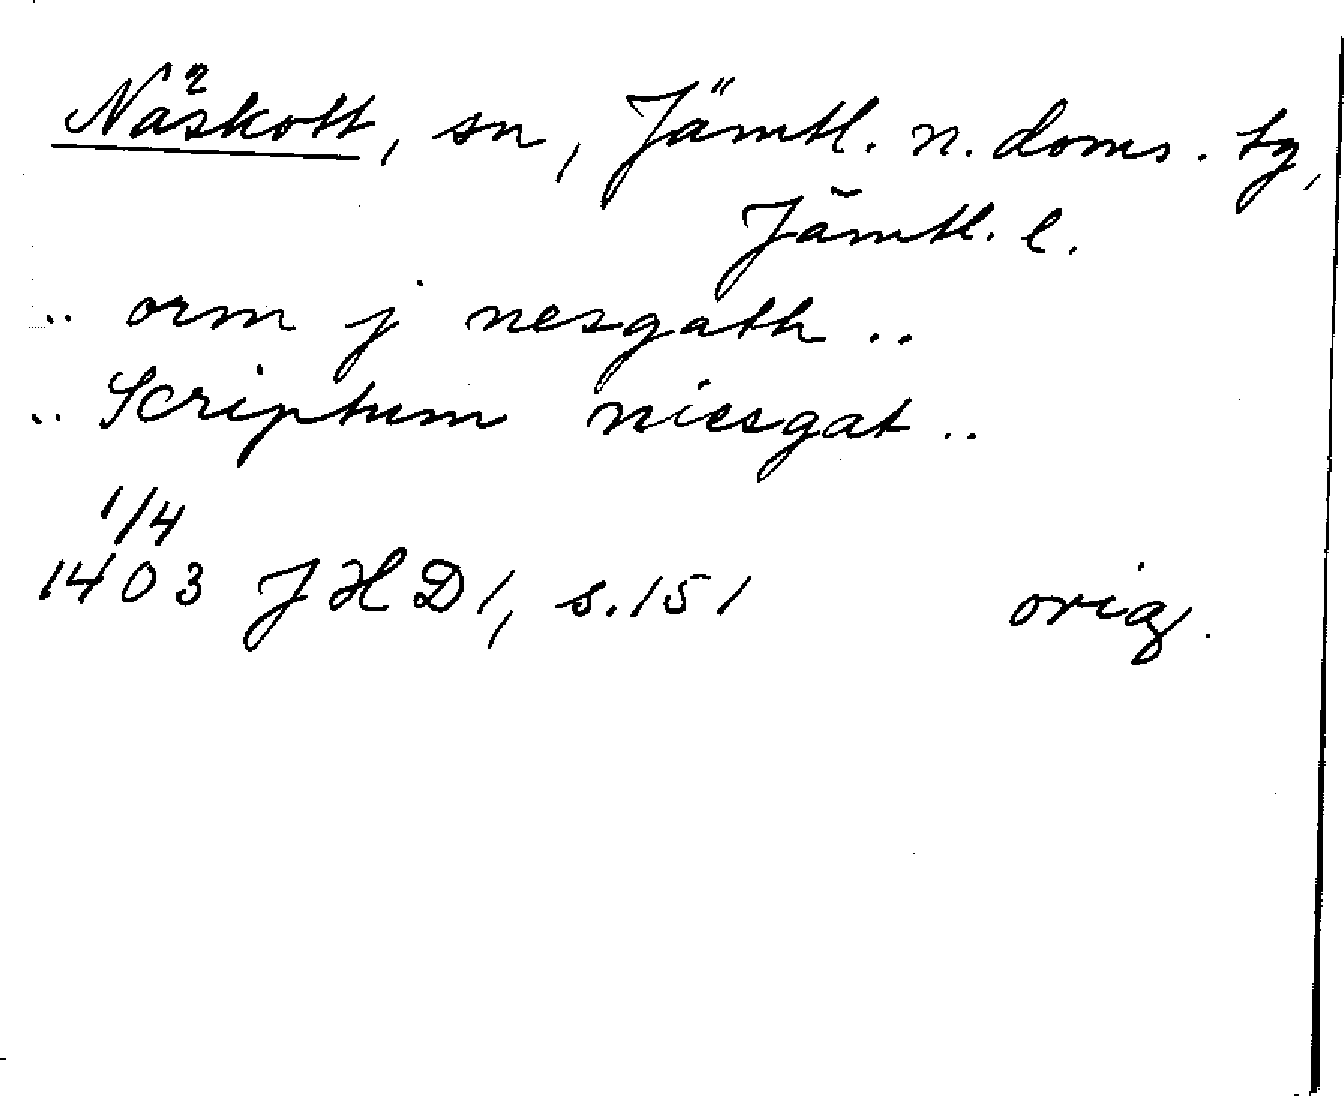 Näskott, sn, Jämtl. n. doms. tg,
Jämtl. l.
.. orm j nesgath ..
.. Scriptum niesgat ..
1/4
1403 JHD 1, s. 151 orig.